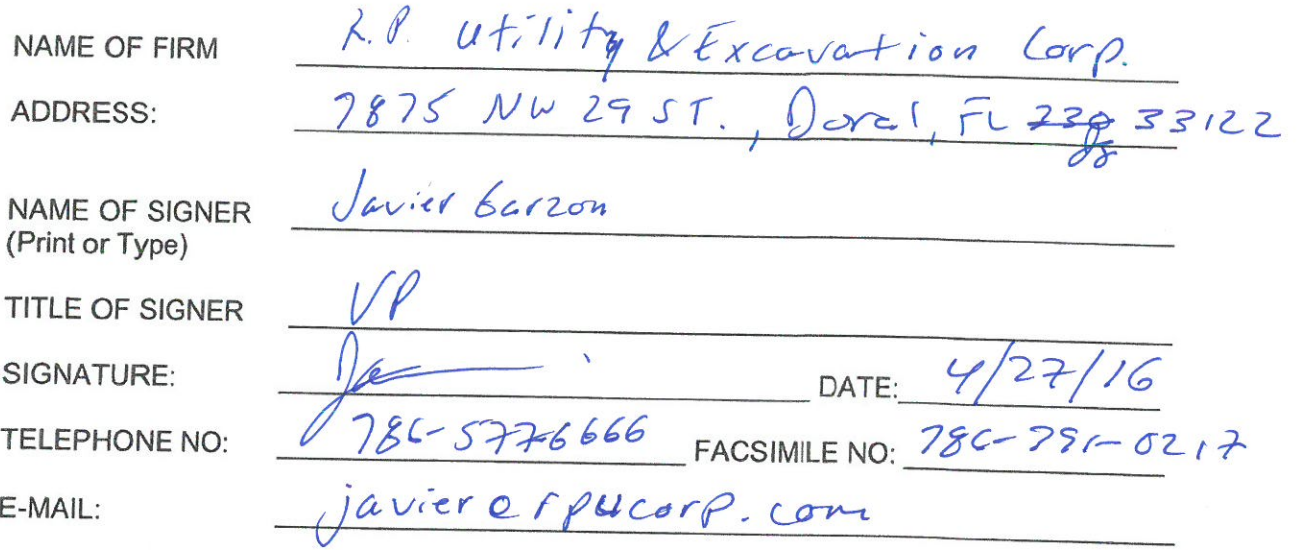 NAME OF FIRM R.P. Utility & Excavation Corp.
ADDRESS: 7875 NW 29 ST., Doral, FL 33122
NAME OF SIGNER Javier Garzon
(Print or Type)
TITLE OF SIGNER VP
SIGNATURE: DATE: 4/27/16
TELEPHONE NO: 786-577-6666 FACSIMILE NO: 786-791-0217
E-MAIL: javier@rpucorp.com